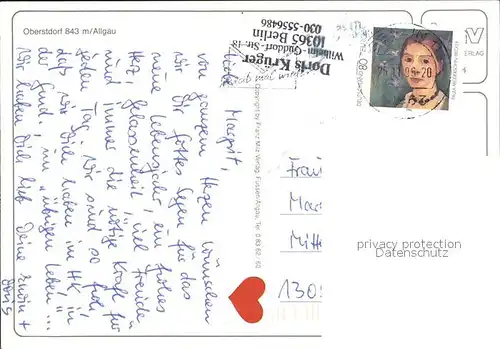 Oberstdorf 843 m/Allgäu
Liebe Margrit,
von ganzem Herzen wünschen
wir Dir Gottes Segen für das
neue Lebensjahr, ein frohes
Herz, Gelassenheit, viel Freude
und immer die nötige Kraft für
jeden Tag. Wir sind so froh,
daß wir Dich haben im HK in
der Jund. u. im "übrigen Leben"...
Wir haben Dich lieb Deine Erwin +
Doris
Doris Krüger
Wilhelm-Guddorf-Str. 15
10365 Berlin
030-5536486
Copyright by Franz Milz Verlag, Füssen/Allgäu, Tel. 0 83 62 / 60
80
20
ERLAG
Frau
Mar
Mitte
130
privacy protection
Datenschutz